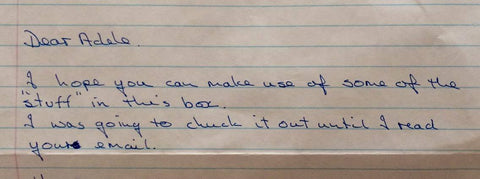 Dear Adele.
I hope you can make use of some of the
"stuff" in this box.
I was going to chuck it out until I read
your email.